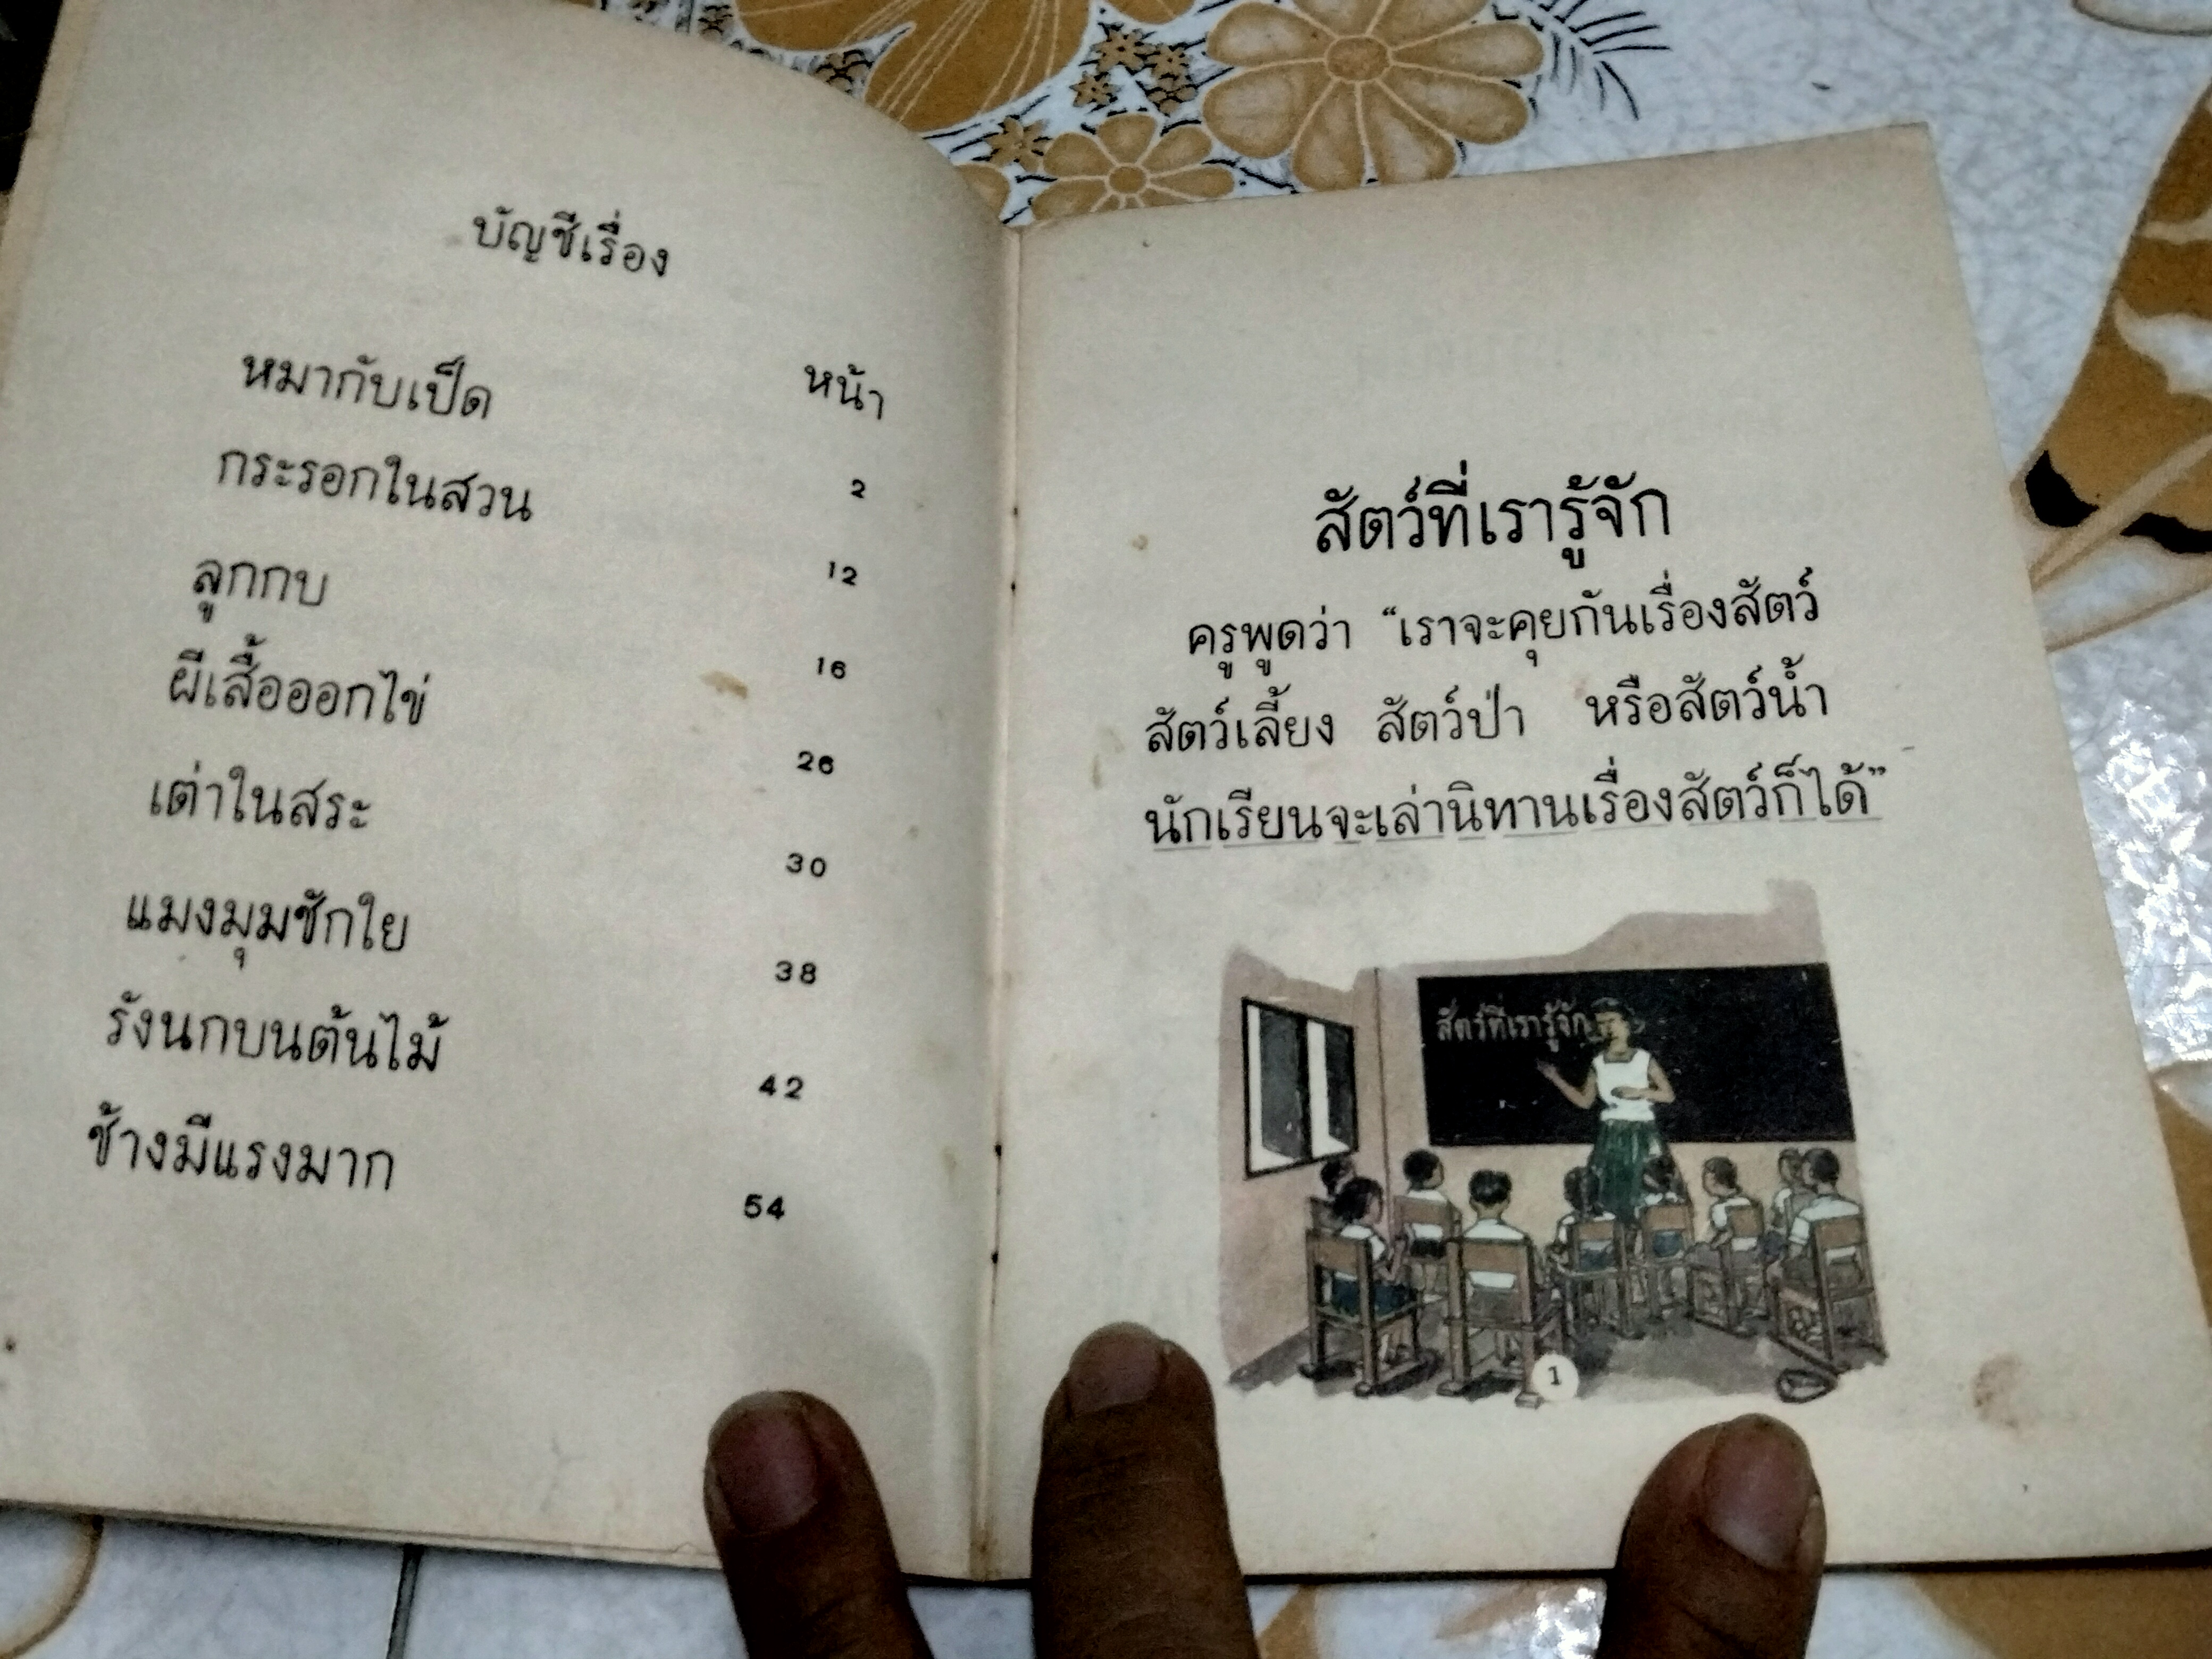 บัญชีเรื่อง
หน้า
หมากับเป็ด 2
กระรอกในสวน 12
ลูกกบ 16
ผีเสื้อออกไข่ 26
เต่าในสระ 30
แมงมุมชักใย 38
รังนกบนต้นไม้ 42
ช้างมีแรงมาก 54
สัตว์ที่เรารู้จัก
ครูพูดว่า “เราจะคุยกันเรื่องสัตว์
สัตว์เลี้ยง สัตว์ป่า หรือสัตว์น้ำ
นักเรียนจะเล่านิทานเรื่องสัตว์ก็ได้”
สัตว์ที่เรารู้จัก
1